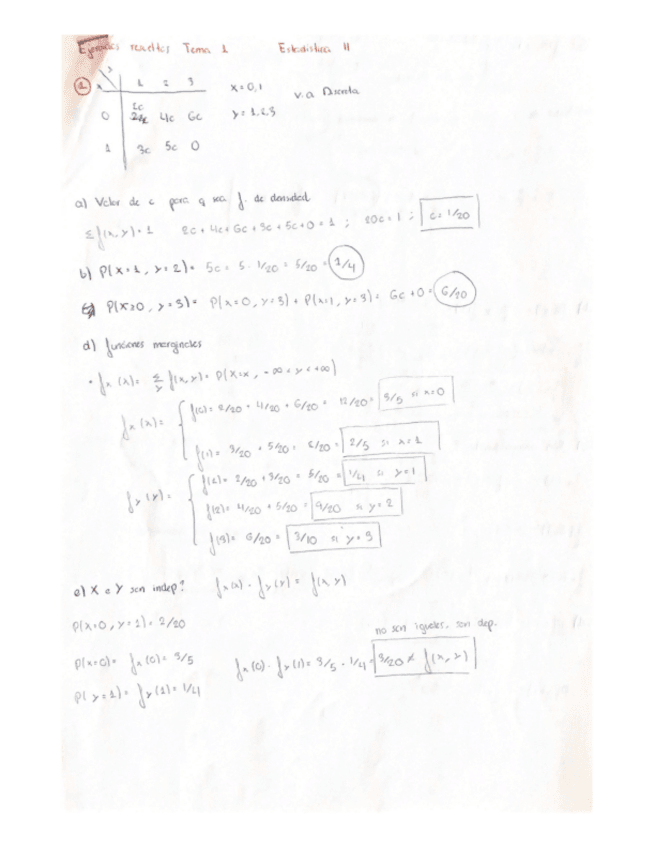 Ejercicios resueltos Tema 1 Estadística II
1 x y 1 2 3 x=0,1 v.a Discreta
0 2c 4c 6c y=1,2,3
1 3c 5c 0
a) Valor de c para q sea f. de densidad
Σ f(x,y)=1 2c+4c+6c+3c+5c+0=1 ; 20c=1 ; c=1/20
b) P(X=1, Y=2)= 5c = 5 · 1/20 = 5/20 = 1/4
P(X≥0, Y=3)= P(X=0, Y=3) + P(X=1, Y=3)= 6c+0= 6/20
d) funciones marginales
· fx(x)= Σ y f(x,y)= P(X=x, -∞<y<+∞)
fx(x)= f(0)= 2/20 + 4/20 + 6/20 = 12/20= 3/5 si x=0
f(1)= 3/20 + 5/20 = 8/20= 2/5 si x=1
fy(y)= f(1)= 2/20 + 3/20 = 5/20 = 1/4 si y=1
f(2)= 4/20 + 5/20 = 9/20 si y=2
f(3)= 6/20= 3/10 si y=3
e) X e Y son indep? fx(x) · fy(y)= f(x,y)
P(X=0, Y=1)= 2/20
no son iguales, son dep.
P(x=0)= fx(0)= 3/5 fx(0) · fy(1)= 3/5 · 1/4= 3/20 ≠ f(x,y)
P(y=1)= fy(1)= 1/4